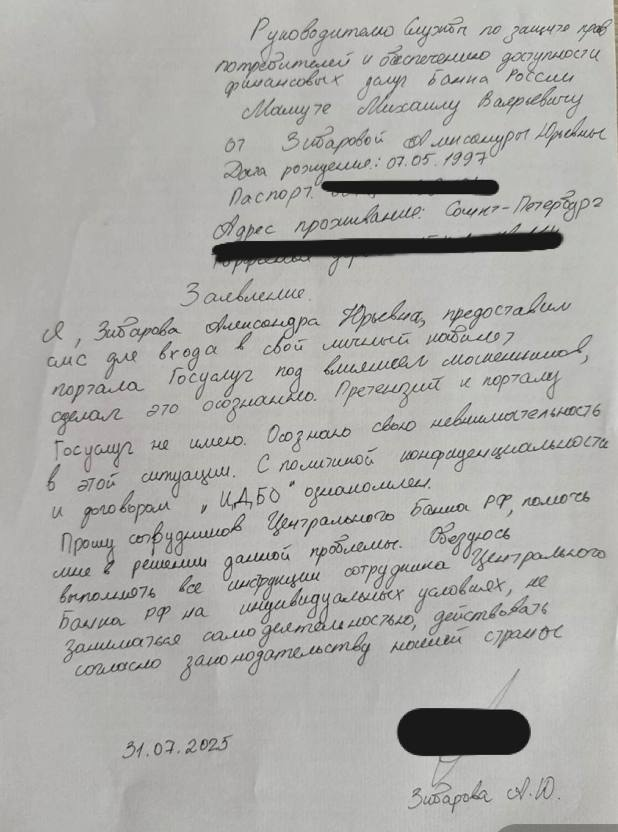 Руководителю Службы по защите прав
потребителей и обеспечению доступности
финансовых услуг Банка России
Мамуте Михаилу Валерьевичу
от Зибаровой Александры Юрьевны
Дата рождения: 07.05.1997
Паспорт:
Адрес проживание: Санкт-Петербург
Заявление.
Я, Зибарова Александра Юрьевна, предоставил
смс для входа в свой личный кабинет
портала Госуслуг под влиянием мошенников,
сделал это осознанно. Претензий к порталу
Госуслуг не имею. Осознаю свою невнимательность
в этой ситуации. С политикой конфиденциальности
и договорам "ЦДБО" ознакомлен.
Прошу сотрудников Центрального Банка РФ, помочь
мне в решении данной проблемы. Обязуюсь
выполнять все инструкции сотрудника Центрального
Банка РФ на индивидуальных условиях, не
заниматься самодеятельностью, действовать
согласно законодательству нашей страны
31.07.2025
Зибарова А.Ю.